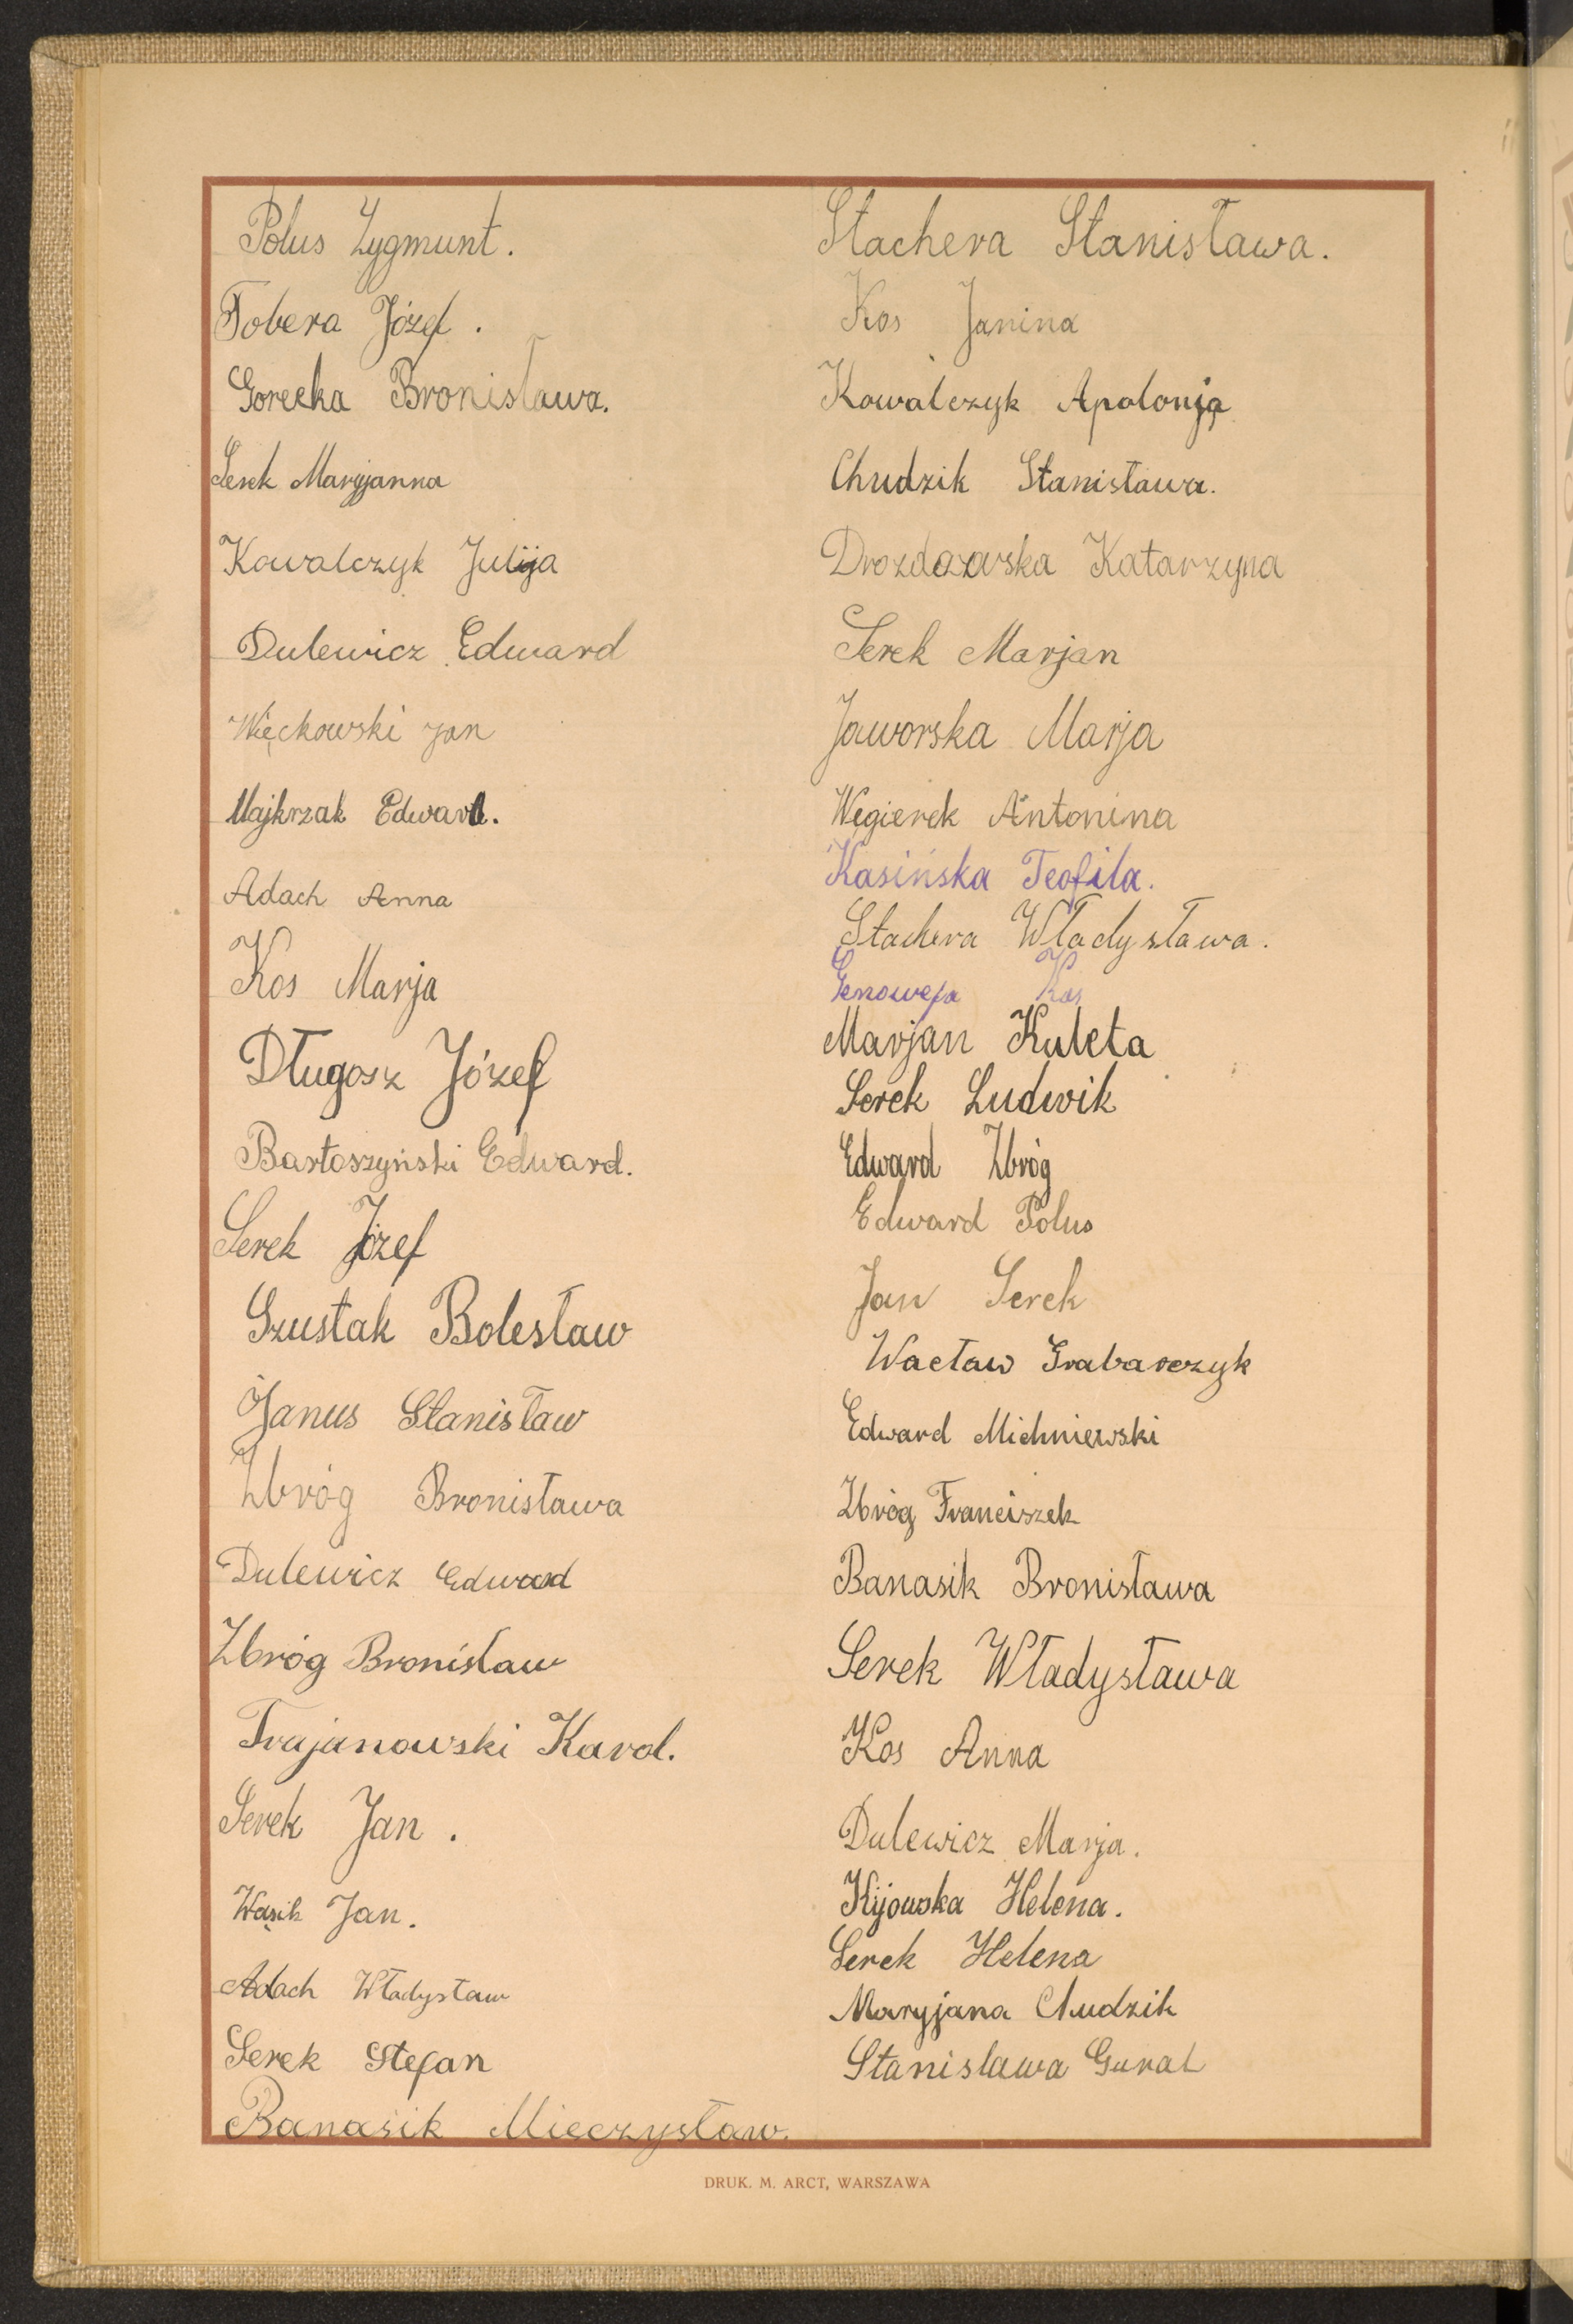 Polus Zygmunt.
Tobera Józef.
Gorecka Bronisława.
Serek Maryjanna
Kowalczyk Julija
Dulewicz Edward
Więckowski Jan
Majkrzak Edward.
Adach Anna
Kos Marja
Długosz Józef
Bartoszyński Edward.
Serek Józef
Szustak Bolesław
Janus Stanisław
Zbróg Bronisława
Dulewicz Edward
Zbróg Bronisław
Trajanowski Karol.
Serek Jan.
Wąsik Jan.
Adach Władysław
Serek Stefan
Banasik Mieczysław.
Stachera Stanisława.
Kos Janina
Kowalczyk Apolonja
Chudzik Stanisława.
Katarzyna
Serek Marjan
Jaworska Marja
Węgierek Antonina
Kasińska Teofila.
Stachera Władysława.
Genowefa Kos
Marjan Kuleta
Serek Ludwik
Edward Zbróg
Edward Polus
Jan Serek
Wacław Grabarczyk
Edward Michniewski
Zbróg Franciszek
Banasik Bronisława
Serek Władysława
Kos Anna
Dulewicz Marja.
Kijowska Helena.
Serek Helena
Maryjana Chudzik
Stanislawa Gural
DRUK. M. ARCT, WARSZAWA